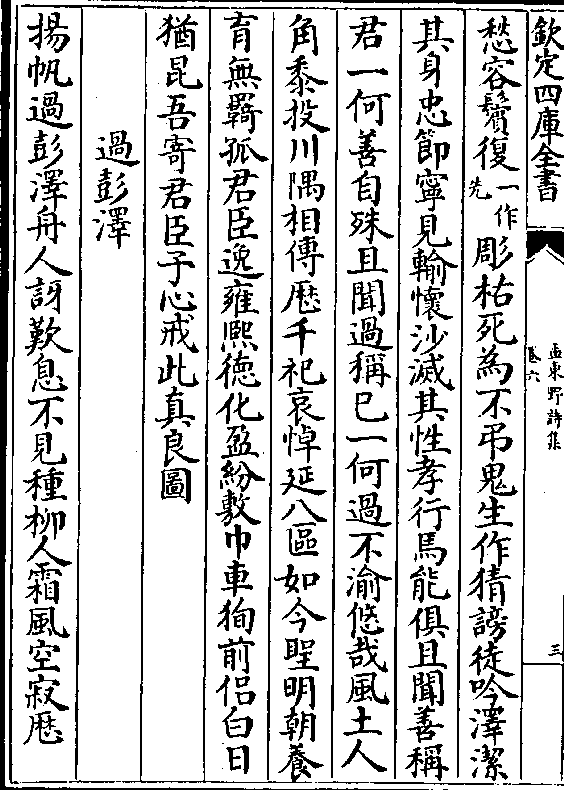 欽定四庫全書
孟東野詩集
卷六
三
愁容鬢復一作先彫枯死為不弔鬼生作猜謗徒吟澤潔
其身忠節寧見輸懷沙滅其性孝行焉能俱且聞善稱
君一何善自殊且聞過稱已一何過不渝悠哉風土人
角黍投川隅相傳歴千祀哀悼延八區如今聖明朝養
育無羇孤君臣逸雍熈德化盈紛敷巾車狥前侶白日
猶昆吾寄君臣子心戒此真良圖
過彭澤
揚帆過彭澤舟人訝歎息不見種柳人霜風空寂歴